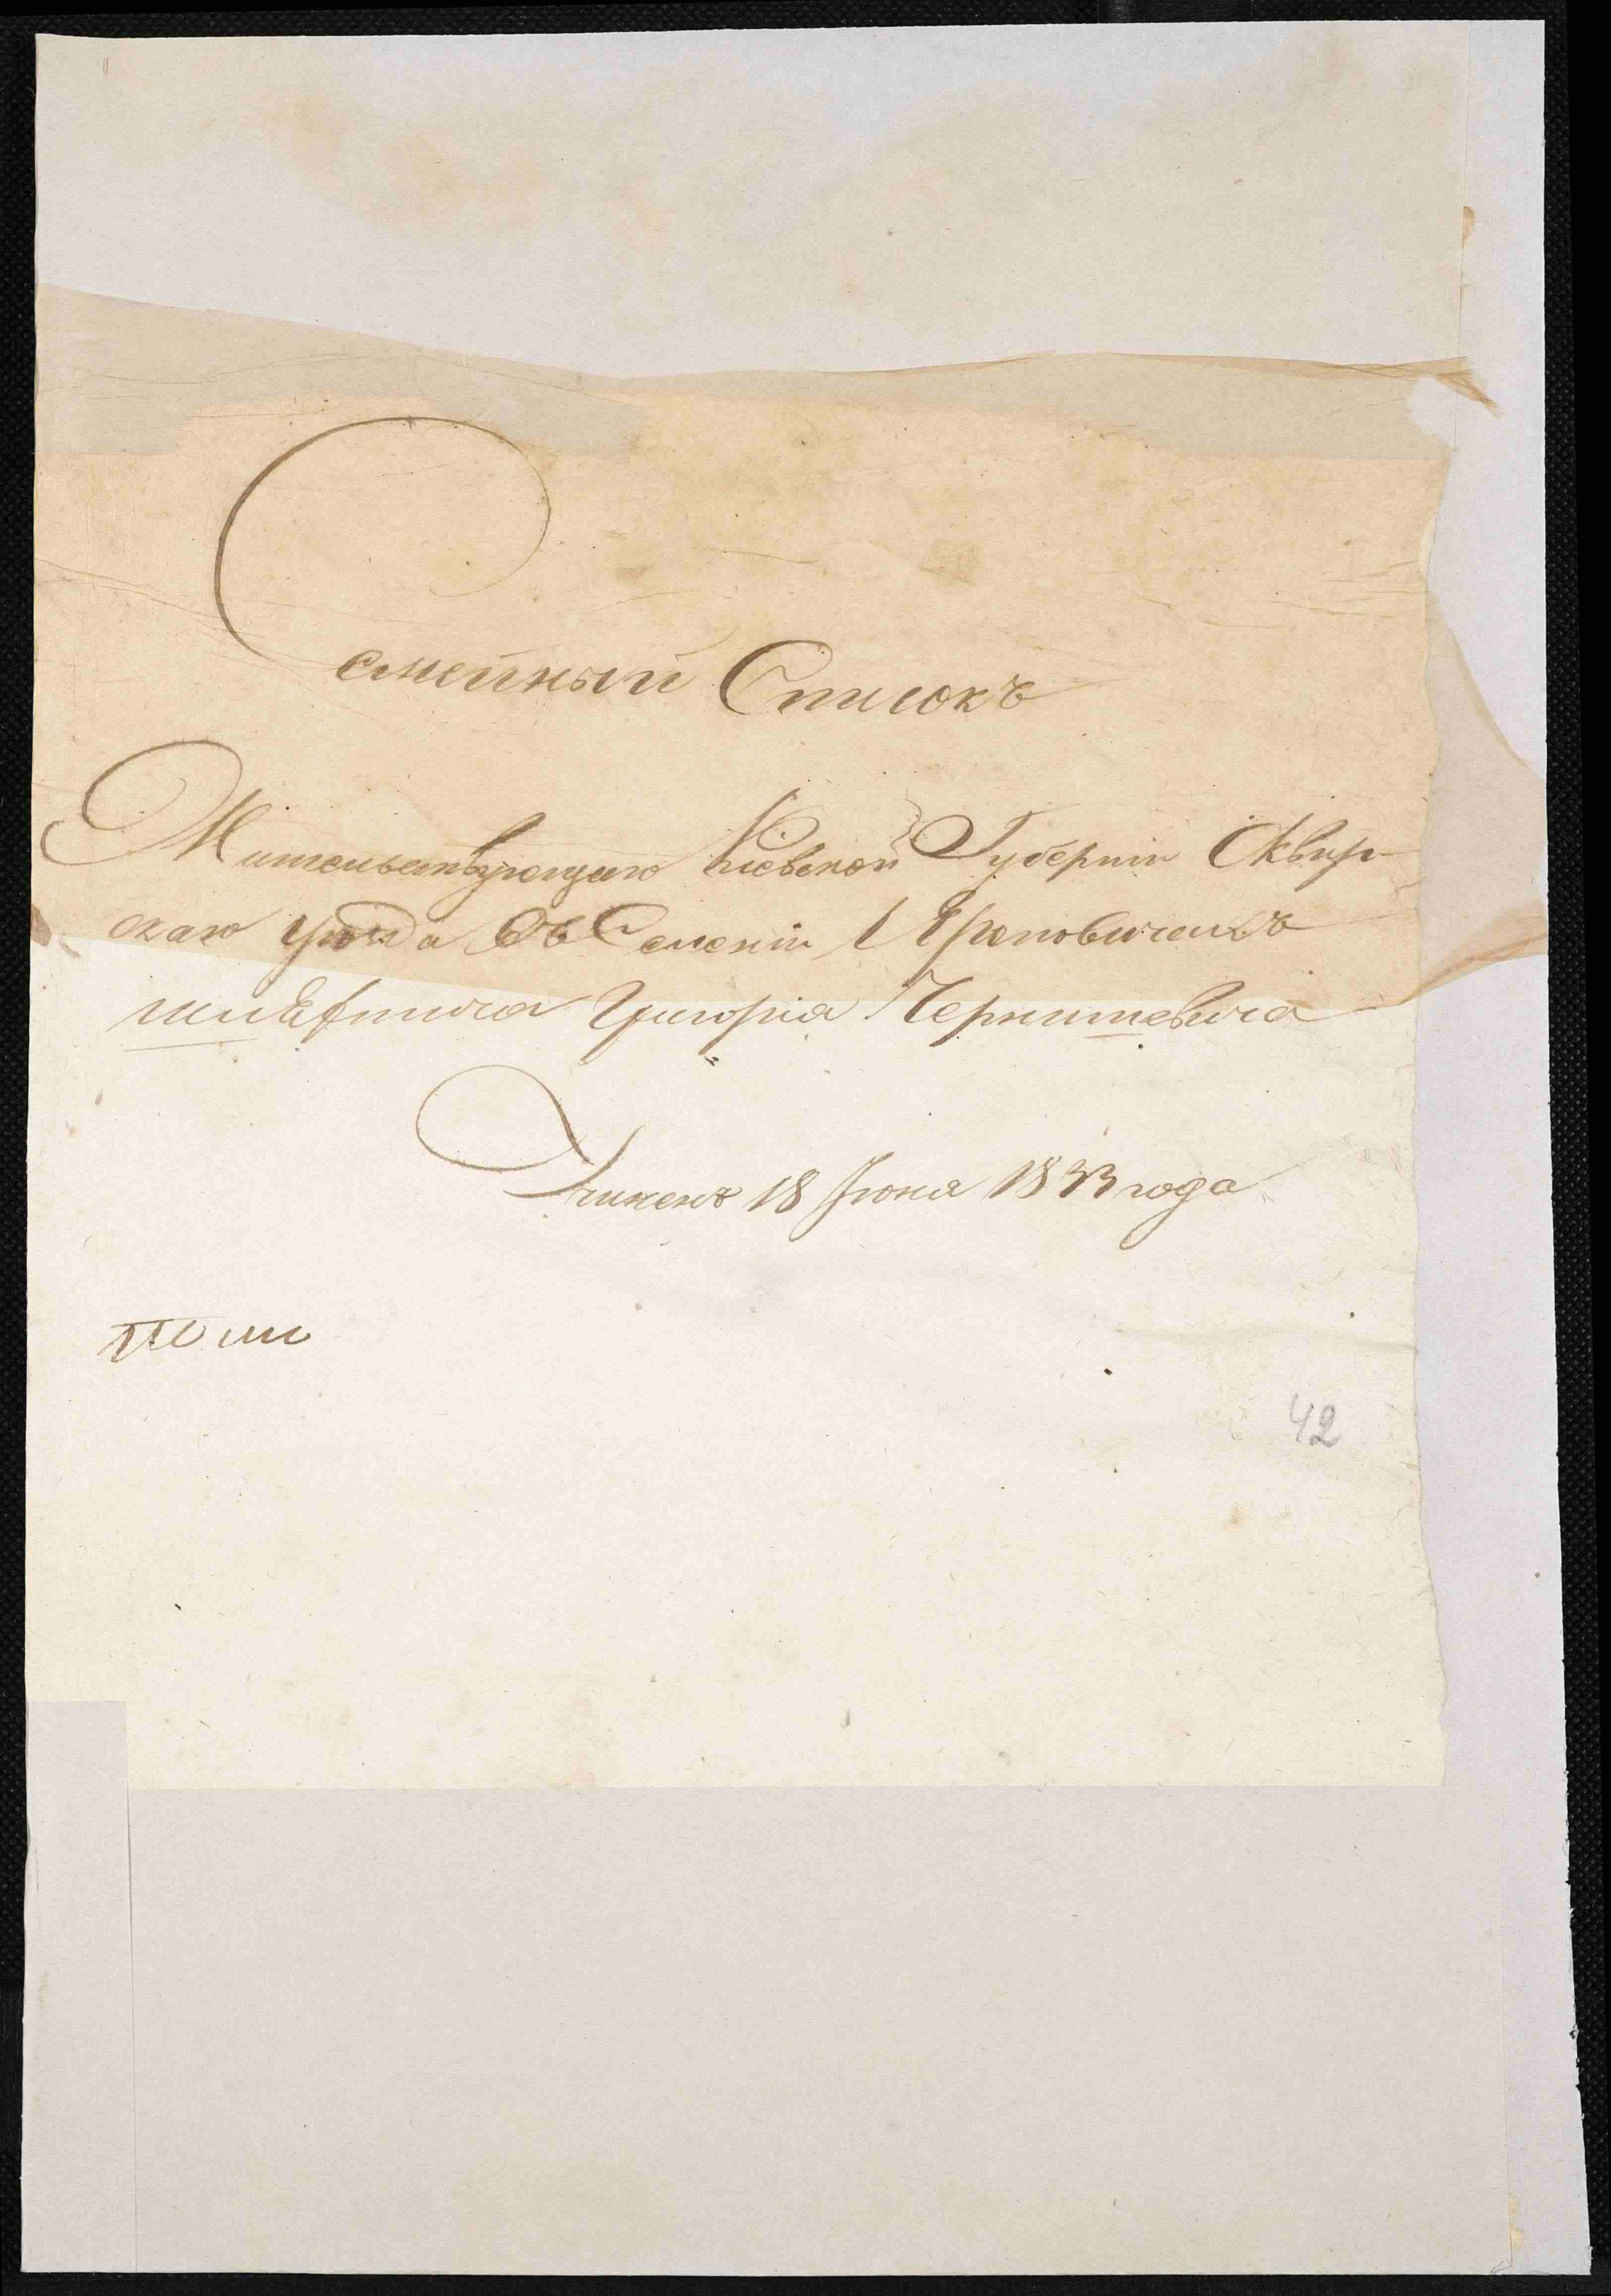 Семейный Списокъ
Жительствующаго Кіевской Губерніи Сквир-
скаго уѣзда Въ Селеніи Ерчовичахъ
шляхтича Григорія Чернишевича
Учиненъ 18 Іюня 1833 года
42